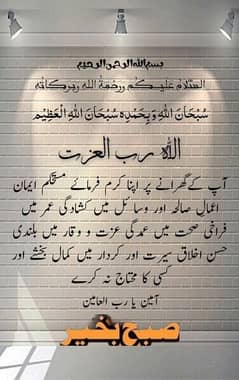 بسم اللہ الرحمن الرحیم
السَّلامُ عَلَيْكُم وَرَحْمَةُ اللهِ وَبَرَكَاتُهُ
سُبْحَانَ اللهِ وَبِحَمْدِهِ سُبْحَانَ اللهِ الْعَظِيْمِ
اللہ رب العزت
آپ کے گھرانے پر اپنا کرم فرمائے مستحکم ایمان
اعمالِ صالحہ اور وسائل میں کشادگی عمر میں
فراخی صحت میں عمدگی عزت و وقار میں بلندی
حسن اخلاق سیرت اور کردار میں کمال بخشے اور
کسی کا محتاج نہ کرے
آمین یا رب العالمین
صبح بخیر